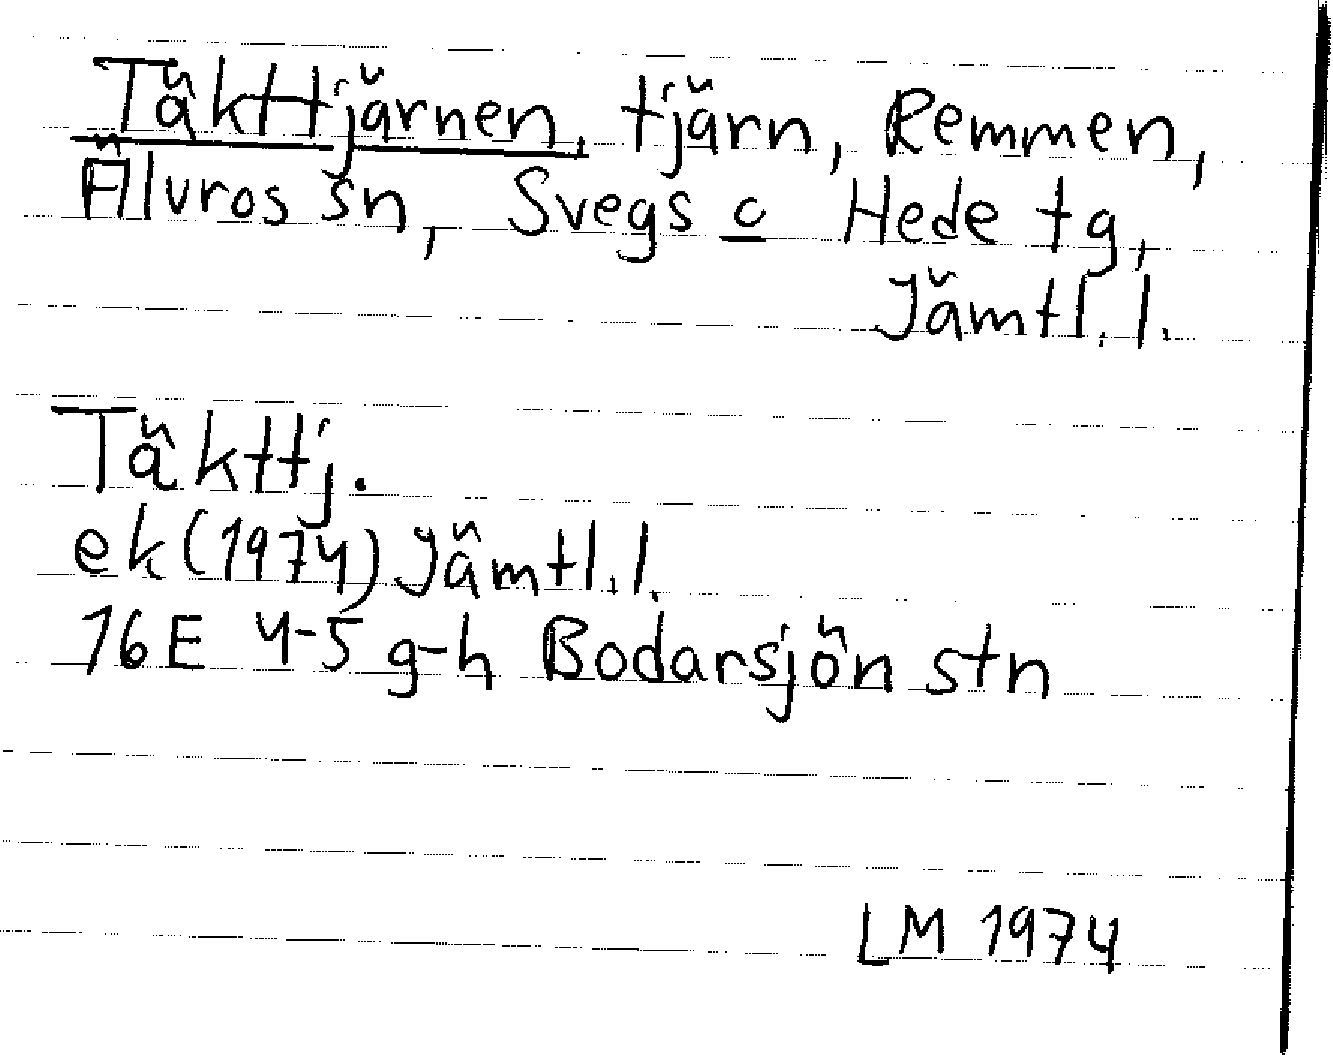 Täkttjärnen, tjärn, Remmen,
Älvros sn, Svegs o Hede tg,
Jämtl. l.
Täkttj.
ek (1974) Jämtl. l.
16E 4-5 g-h Bodarsjön stn
LM 1974